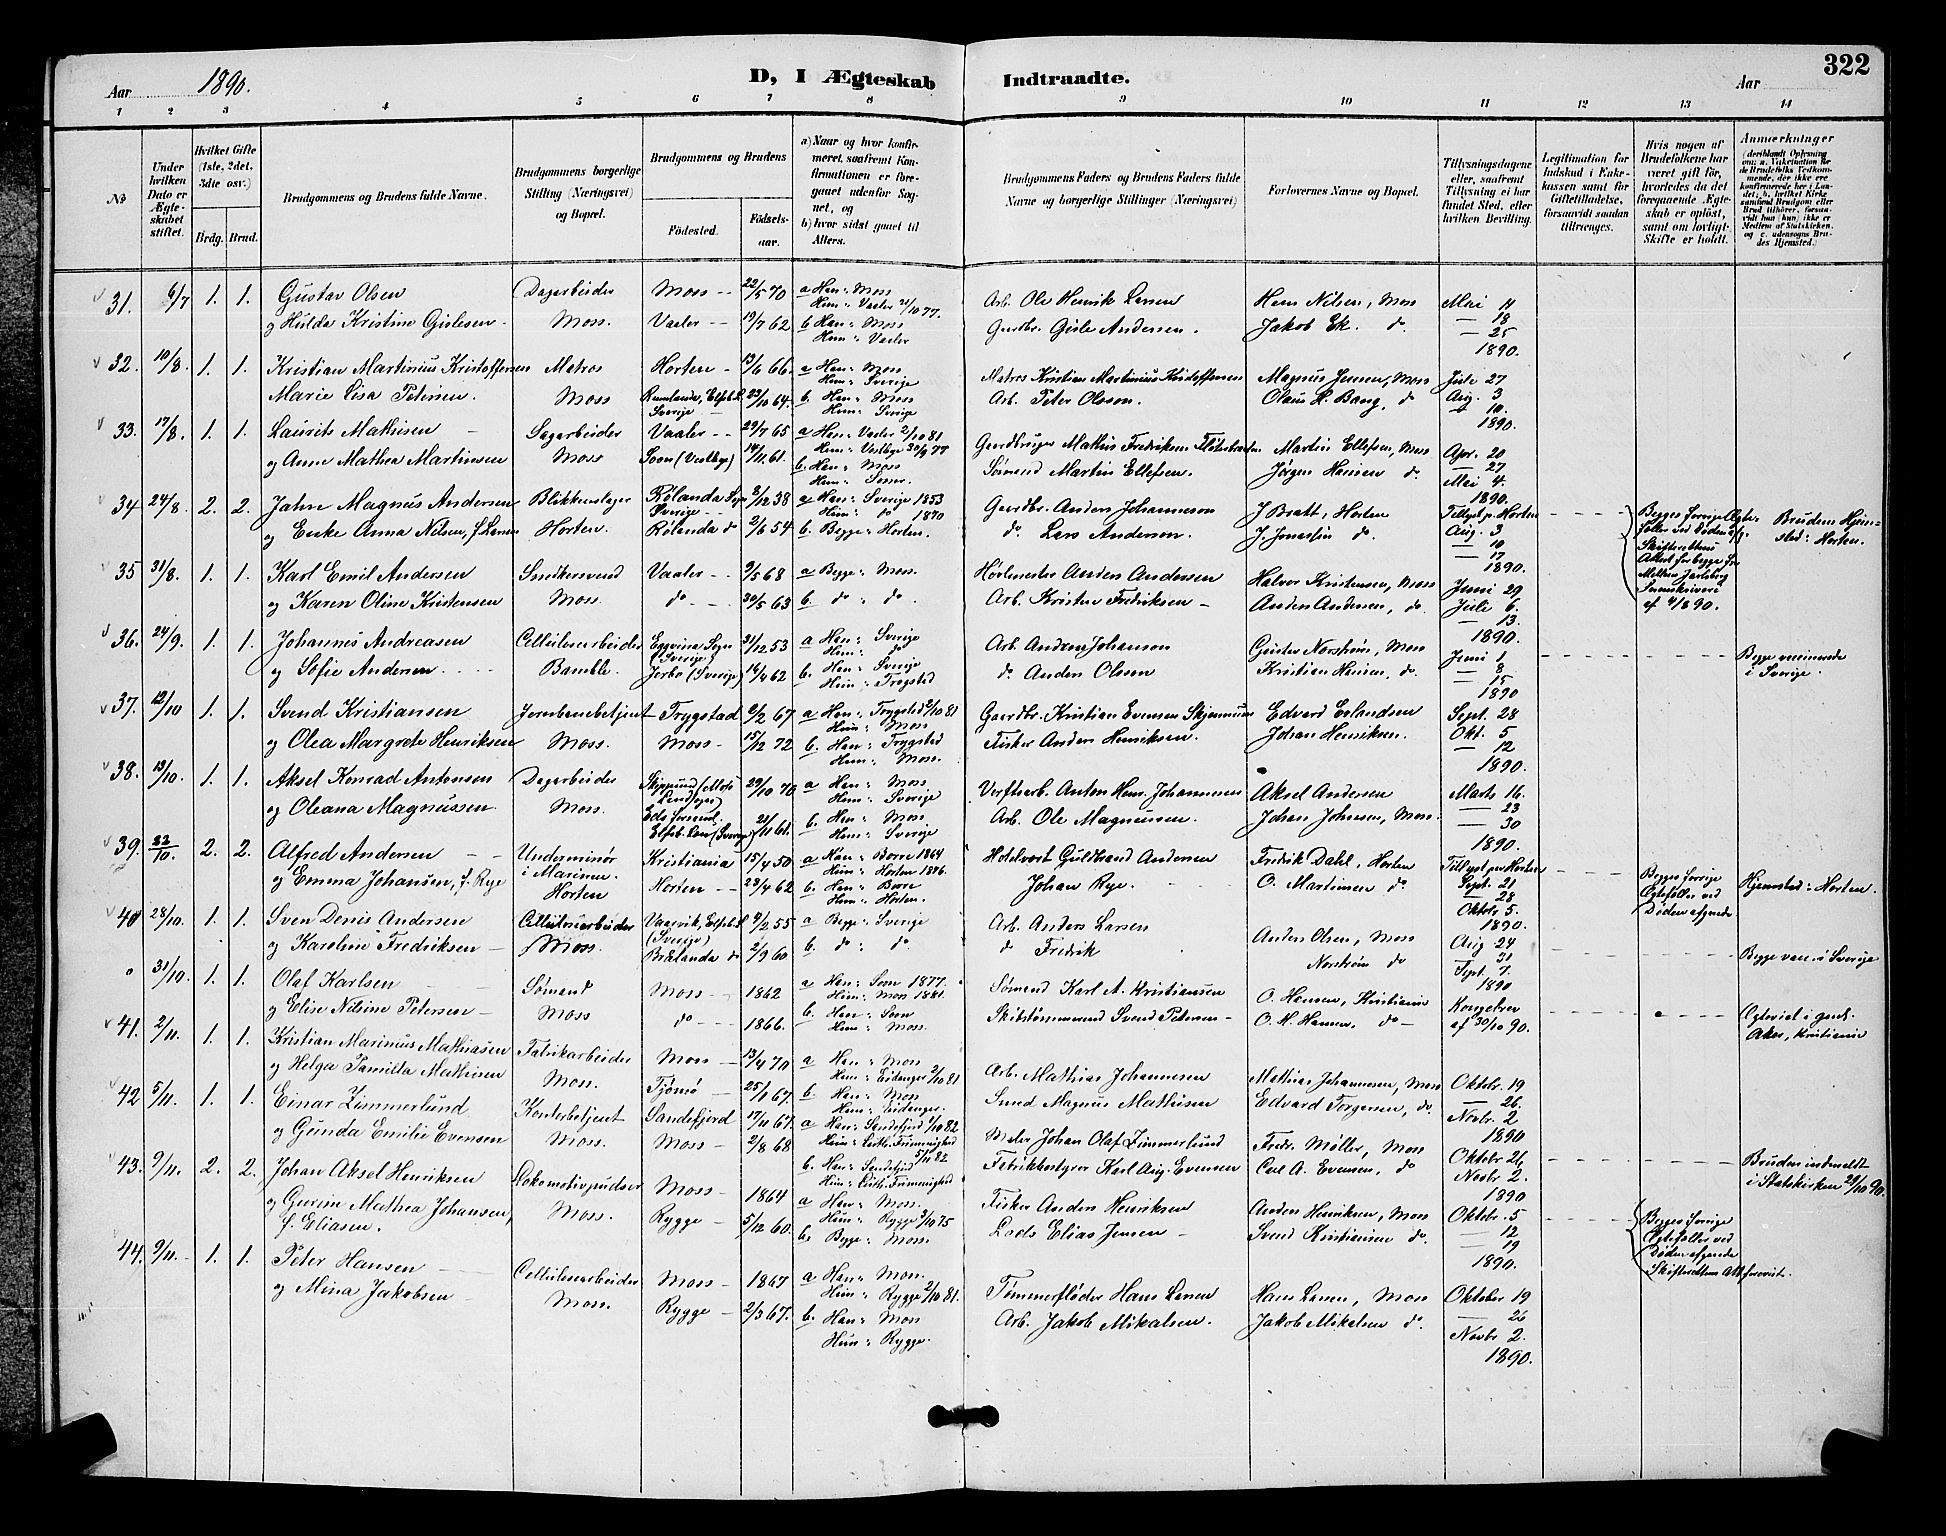 322
Aar 1890.
D, I Ægteskab Indtraadte.
Aar
1 2 3 4 5 6 7 8 9 10 11 12 13 14
No
Under hvilken Dato er Ægteskabet stiftet.
Hvilket Gifte (1ste, 2det, 3die osv.)
Brdg. Brud.
Brudgommens og Brudens fulde Navne.
Brudgommens borgerlige Stilling (Næringsvei) og Bopæl.
Brudgommens og Brudens
Födested.
Födselsaar.
a) Naar og hvor konfirmeret, saafremt Konfirmationen er foregaaet udenfor Sognet, og
b) hvor sidst gaaet til Alters.
Brudgommens Faders og Brudens Faders fulde Navne og borgerlige Stillinger (Næringsvei)
Forlovernes Navne og Bopæl.
Tillysningsdagene eller, saafremt Tillysning ei har fundet Sted, efter hvilken Bevilling.
Legitimation for Indskud i Enkekassen samt for Giftetilladelse, forsaavidt saadan tiltrænges.
Hvis nogen af Brudefolkene har været gift för, hvorledes da det foregaaende Ægteskab er oplöst, samt om lovligt Skifte er holdt.
Anmerkninger
31. 6/7 1. 1. Gustav Olsen Dagarbeider Moss 22/5 70 a Han: Moss Arb. Ole Henrik Larsen Hans Nilsen, Moss Mai 11
Hun: Vaaler 21/10 77. — 18
og Hulda Kristine Gislesen Moss. Vaaler 19/7 62 b. Han: Moss Gaardbr. Gisle Andersen. Jakob Ek. do — 25
Hun: Vaaler 1890.
32. 10/8. 1. 1. Kristian Martinius Kristoffersen Matros Horten 13/6 66. a Han: Moss Matros Kristian Martinius Kristoffersen Magnus Jensen, Moss Juli 27
Hun: Sverige Aug. 3
Marie Lisa Petersen. Moss 23/10 64. b. Han: Moss Arb. Peter Olsson. Claus H. Bang, do — 10.
Sverige Hun: Sverige 1890.
33. 17/8. 1. 1. Laurits Mathisen Sagarbeider Vaaler 29/7 65 a Han: Vaaler 2/10 81 Gaardbruger Mathis Fredriksen Martin Ellefsen, Moss Apr. 20
Hun: Vestby 30/9 77 — 27
og Anne Mathea Martinsen Moss Soon (Vestby) 14/11 61. b. Han: Moss Sømand Martin Ellefsen. Jørgen Hansen do. Mai 4.
Hun: Soon. 1890.
34 24/8. 2. 2. Jahn Magnus Andersen Blikkenslager Rölanda Sogn 3/12 38 a Han: Sverige 1853 Gaardbr. Anders Johannesson J Bratt, Horten Tillyst pr Horten Begges forrige Ægte- Brudens Hjem-
Sverige Hun: do 1870 Aug. 3 fæller ved Döden afg. sted: Horten.
og Enke Anna Nilsen, f. Larsen Horten. Rölanda do 2/6 54 b. Begge: Horten. do. Lars Anderson. J. Jonaslin do. — 10
— 17 Skifterettens Attest for begge fra Mellem Jarlsberg Sorenskriveri af 4/8 90.
1890.
35 31/8. 1. 1. Karl Emil Andersen Snedkersvend Vaaler 9/5 68 a Begge: Moss. Anders Andersen Halvor Kristensen, Moss Juni 29
og Karen Oline Kristensen Moss. do 30/5 63 b do: do. Arb. Kristen Fredriksen Anders Andersen, do. Juli 6.
— 13.
1890.
36. 24/9. 1. 1. Johannes Andreasen Cellulosearbeider Sogn (Sverige) 31/12 53 a Han: Sverige Arb. Andreas Johanson Gustav Norstrøm, Moss Juni 1 Begge vaccinerede
Hun: do i Sverige.
og Sofie Andersen Bamble. Jerbo (Sverige) 14/4 62 b. Han: Sverige do. Anders Olsen Kristian Hansen, do. — 8
Hun: Trøgstad — 15
1890
37. 12/10 1. 1. Svend Kristiansen Jernbanebetjent Trygstad 2/2 67 a Han: Trygstad 2/10 81 Gaardbr. Kristian Evensen Edvard Erlandsen Sept. 28
Hun: Moss Okt. 5
og Olea Margrete Henriksen Moss. Moss 15/12 72 b. Han: Trygstad Fisker Anders Henriksen. Johan Henriksen. — 12
Hun: Moss. 1890.
38. 13/10. 1. 1. Aksel Konrad Antonsen Dagarbeider 29/10 70 a Han: Moss Verftsarb. Anton Henr. Johannesen Aksel Andersen Marts 16.
Hun: Sverige — 23
og Oleana Magnussen Moss. (Sverige) 21/11 61. b. Han: Moss Arb. Ole Magnussen. Johan Johnsen, Moss. — 30
Hun: Sverige 1890.
39. 22/10. 2. 2. Alfred Andersen Underminør Kristiania 15/4 50 a Han: Borre 1864 Hotelvert Guldbrand Andersen Fredrik Dahl, Horten Tillyst pr Horten Begges forrige Hjemsted: Horten.
i Marinen. Hun: Horten 1876. Sept. 21 Ægtefæller ved
og Emma Johansen, f. Rye Horten Horten 23/4 62 b. Han: Borre Johan Rye. O. Martinsen do — 28 Döden afgaaede.
Hun: Horten. Oktbr 5.
1890.
40 28/10. 1. 1. Sven Denis Andersen Cellulosearbeider Vaarvik, Elfsb.l. (Sverige) 4/2 55 a Begge: Sverige Arb. Anders Larsen Anders Olsen, Moss Aug 24 Begge vacc. i Sverige
og Karoline Fredriksen Moss. Brålanda do 2/9 60 b. do: do. do Fredrik Norstrøm do — 31
Sept. 7.
1890
31/10. 1. 1. Olaf Karlsen Sømand Moss 1862 a Han: Soon 1877. Sømand Karl A. Kristiansen O. Hansen, Kristiania Kongebrev Ægteviet i
Hun: Moss 1881.
og Elise Nilsine Petersen Moss do 1866. b. Han: Soon Skibstømmermand Svend Petersen O. M. Hansen, do af 30/10 90. Aker, Kristiania
Hun: Moss.
41. 2/11. 1. 1. Kristian Marinius Mathiasen Fabrikarbeider Moss 13/4 70 a Han: Moss Arb. Mathias Johannesen Mathias Johannesen, Moss Oktbr. 19
Hun: Eidanger 2/10 81 — 26.
og Helga Pamilla Mathisen Moss. Tjømø 25/1 67. b. Han: Moss Smed Magnus Mathisen Edvard Torgersen, do. Novbr. 2
Hun: Eidanger. 1890
42 5/11. 1. 1. Einar Zimmerlund Kontorbetjent Sandefjord 17/11 67. a Han: Sandefjord 1/10 82 Maler Johan Olaf Zimmerlund Fredr. Møller, Moss Oktbr 26 Bruden indmeldt
Hun: Luth. Frimenighed 5/11 82. i Statskirken 29/10 90.
og Gunda Emilie Evensen Moss. Moss 2/8 68 b. Han: Sandefjord Fabrikbestyrer Karl Aug. Evensen Carl A. Evensen, do Novbr 2.
Hun: Luth. Frimenighed 1890
43. 9/11. 2. 2. Johan Aksel Henriksen Lokomotivpudser Moss 1864 a Han: Moss. Fisker Anders Henriksen Anders Henriksen, Moss Oktobr. 5 Begges forrige
Hun: Rygge 3/10 75 Ægtefæller ved
og Gurine Mathea Johansen, f. Eliasen. Moss. Rygge 5/12 60. b. Begge: Moss. Lods Elias Jensen Svend Kristiansen do. — 12 Döden afgaaede
— 19 Skifterettens Att. forevist.
1890.
44. 9/11. 1. 1. Peter Hansen Cellulosearbeider Moss 1867 a Han: Moss. Tømmerfløder Hans Larsen Hans Larsen, Moss Oktober 19
Hun: Rygge 2/10 81.
og Mina Jakobsen Moss. Rygge 2/3 67. b Han: Moss Arb. Jakob Mikalsen. Jakob Mikalsen do. — 26
Hun: Rygge. Novbr 2.
1890.